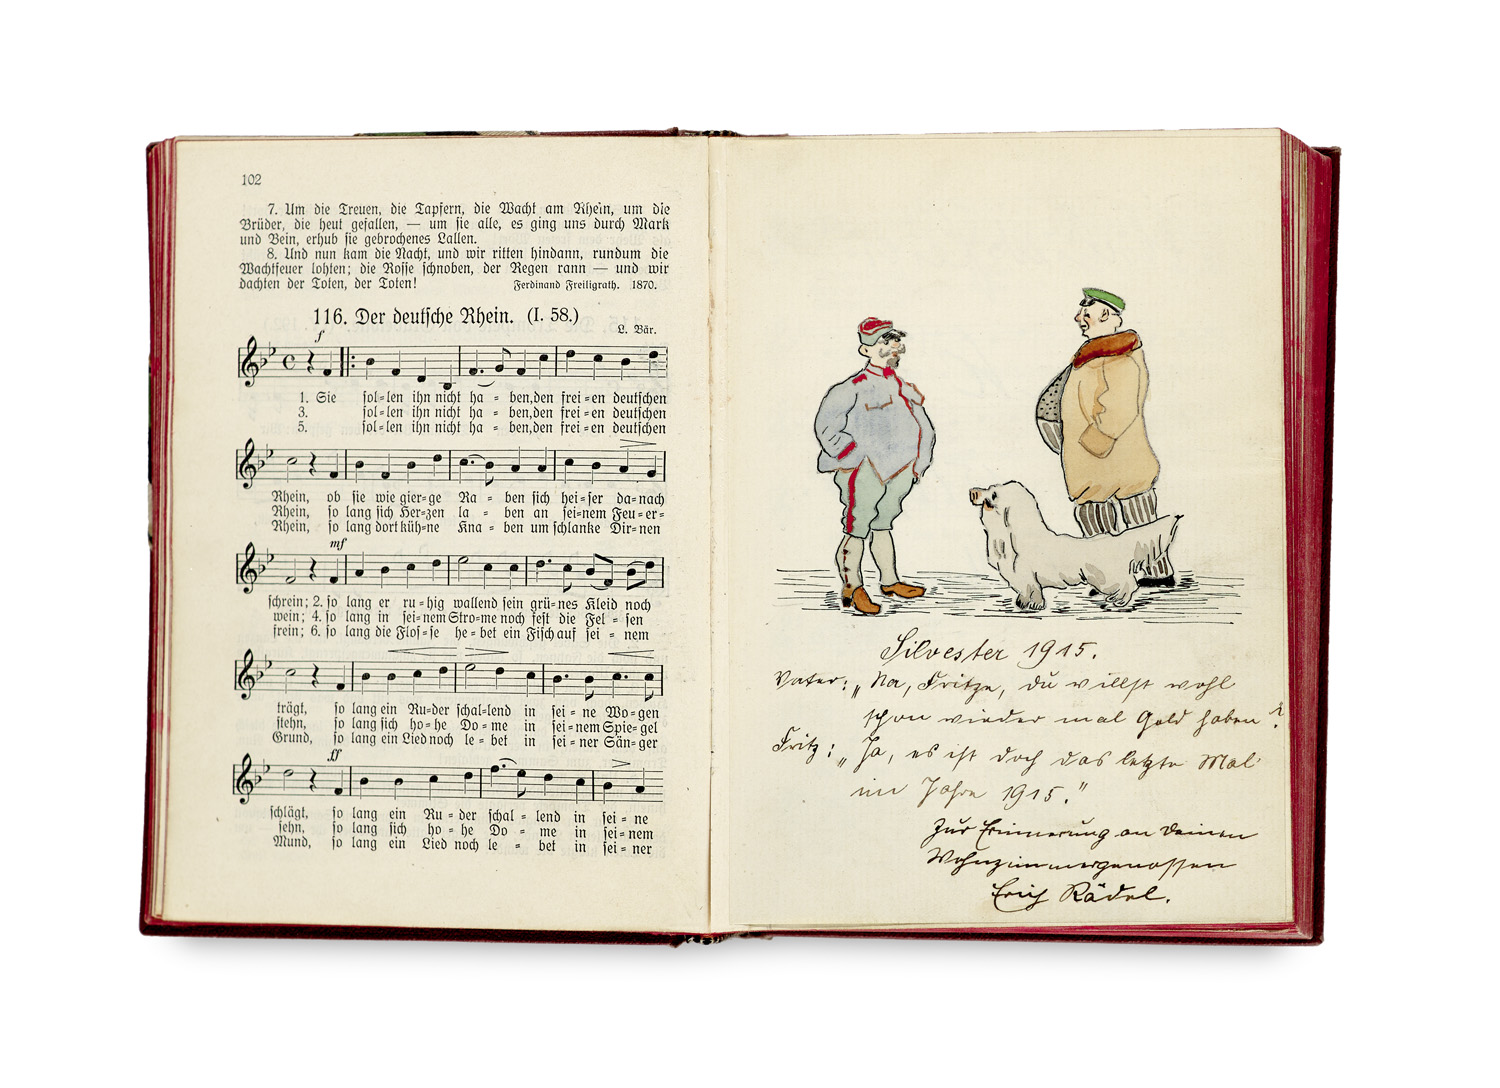 102
7. Um die Treuen, die Tapfern, die Wacht am Rhein, um die
Brüder, die heut gefallen, — um sie alle, es ging uns durch Mark
und Bein, erhub sie gebrochenes Lallen.
8. Und nun kam die Nacht, und wir ritten hindann, rundum die
Wachtfeuer lohten; die Rosse schnoben, der Regen rann — und wir
dachten der Toten, der Toten!
Ferdinand Freiligrath. 1870.
116. Der deutsche Rhein. (I. 58.)
L. Bär.
f
1. Sie sol=len ihn nicht ha - ben, den frei=en deutschen
3. sol=len ihn nicht ha - ben, den frei=en deutschen
5. sol=len ihn nicht ha - ben, den frei=en deutschen
Rhein, ob sie wie gier=ge Ra - ben sich hei=ser da=nach
Rhein, so lang sich Her=zen la - ben an sei=nem Feu=er=
Rhein, so lang dort küh=ne Kna - ben um schlanke Dir=nen
mf
schrein; 2. so lang er ru=hig wallend sein grü=nes Kleid noch
wein; 4. so lang in sei=nem Stro=me noch fest die Fel - sen
frein; 6. so lang die Flos=se he=bet ein Fisch auf sei - nem
trägt, so lang ein Ru=der schal=lend in sei - ne Wo=gen
stehn, so lang sich ho=he Do=me in sei=nem Spie=gel
Grund, so lang ein Lied noch le - bet in sei=ner Sän=ger
ff
schlägt, so lang ein Ru - der schal - lend in sei=ne
sehn, so lang sich ho - he Do - me in sei=nem
Mund, so lang ein Lied noch le - bet in sei=ner
Silvester 1915.
Vater: „Na, Fritze, du willst wohl
schon wieder mal Geld haben?
Fritz: „Ja, es ist doch das letzte Mal
im Jahre 1915."
Zur Erinnerung an Deinen
Wohnzimmergenossen
Erich Rädel.